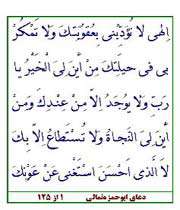 اِلٰهى لا تُؤَدِّبْنى بِعُقُوبَتِكَ وَلا تَمْكُرْ
بى فى حيلَتِكَ مِنْ اَيْنَ لِىَ الْخَيْرُ يا
رَبِّ وَلا يُوجَدُ اِلاّ مِنْ عِنْدِكَ وَمِنْ
اَيْنَ لِىَ النَّجاةُ وَلا تُسْتَطاعُ اِلاّ بِكَ
لاَ الَّذى اَحْسَنَ اسْتَغْنى عَنْ عَوْنِكَ
دعاى ابوحمزه ثمالى ١ از ١٢٥